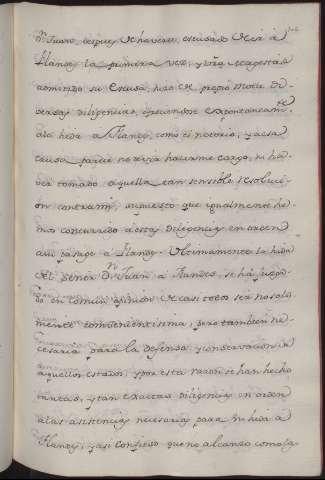 Dn Juan, despues de haverse escusado de ir a
Flandes la primera vez, y Vra Magestad
admitido su escusa, hizo de propio motu di-
versas diligencias, ofreciendose expontaneamte
a la hida a Flandes, como es notorio, y a esta
causa parece no devia hacerme cargo, ni ha-
ver tomado aquella tan sensible resolucion
contra mi, supuesto que igualmente he-
mos concurrido a estas diligencias en orden
a su pasage a Flandes. Ultimamente la hida
del Señor Dn Juan a Flandes, se há juzga-
do en comun opinion de casi todos ser no solo
mente combenientissima, pero tambien ne-
cesaria para la defensa, y conservacion de
aquellos estados, y por esta razon se han hecho
tantas, y tan exactas diligencias en orden
a las asistencias necesarias para su hida á
Flandes, y asi confieso que no alcanzo como la